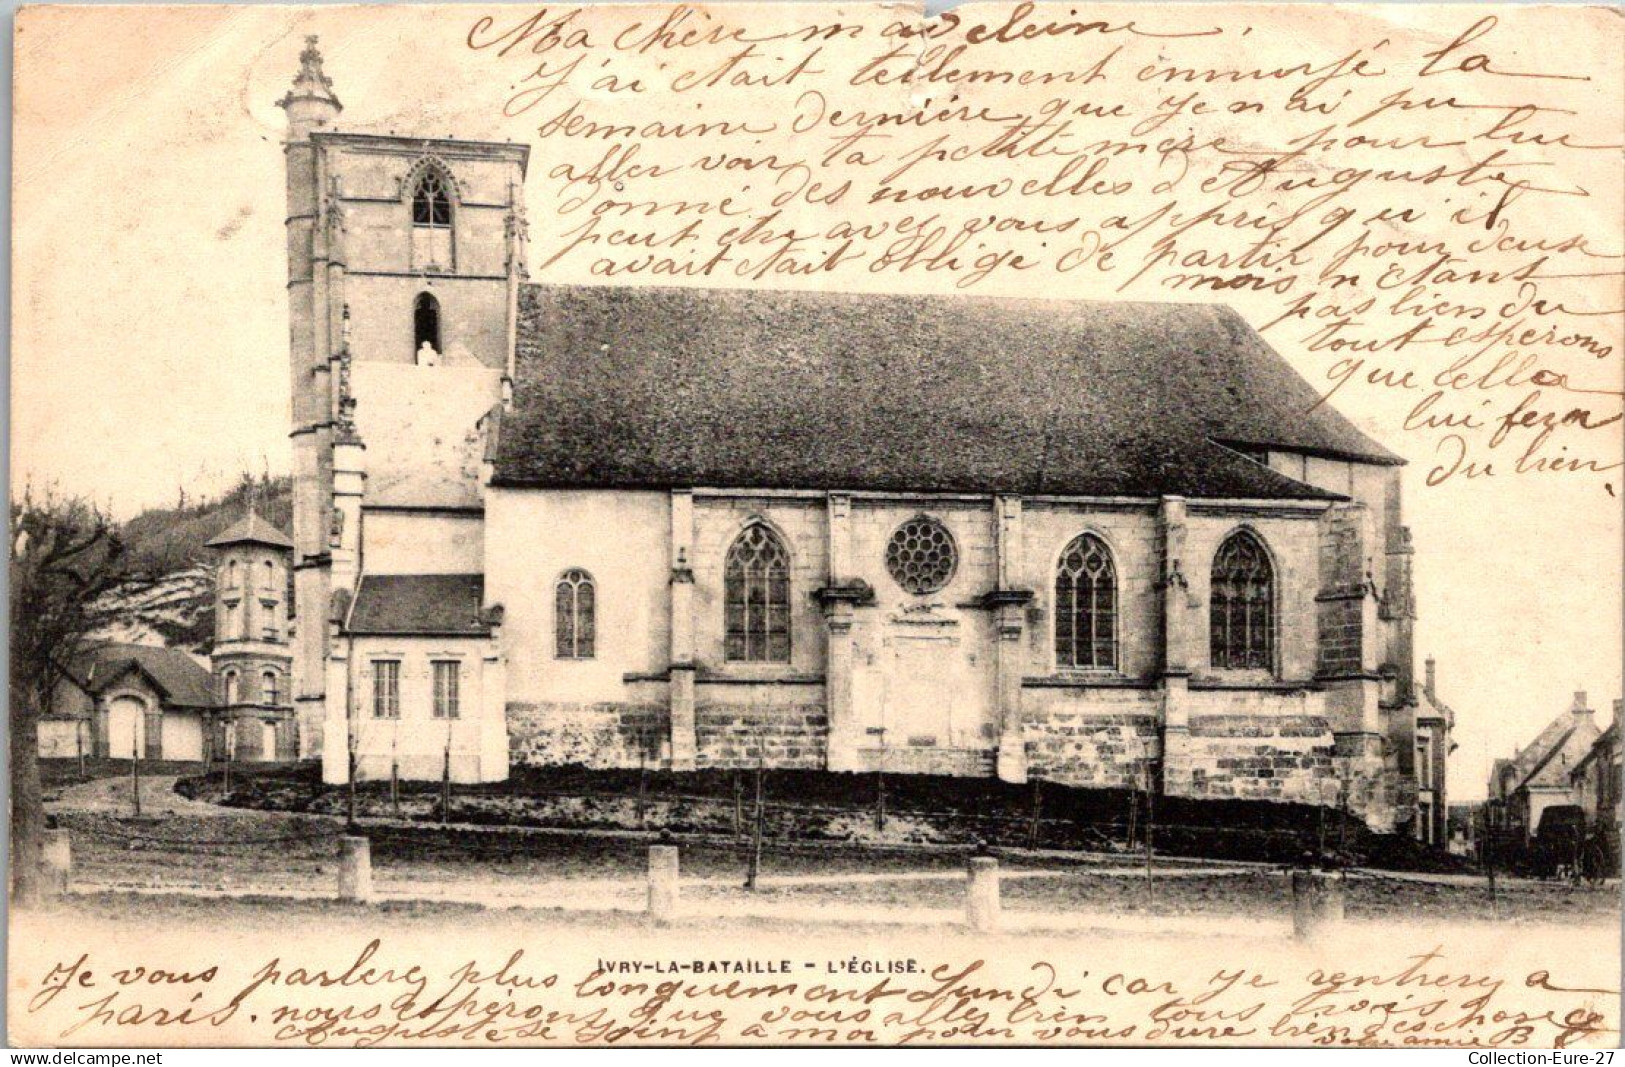 Ma chère madeleine,
J'ai etait tellement ennuyé la
semaine dernière que je n'ai pu
aller voir ta petite mère pour lui
donné des nouvelles d'Auguste
peut etre avez vous appris qu'il
avait etait obligé de partir pour deuse
mois n'etant
pas bien du
tout esperons
que celles
lui fera
du bien.
IVRY-LA-BATAILLE - L'ÉGLISE.
Je vous parlerez plus longuement Lundi car je rentrerez a
paris. nous espérons que vous allez bien tous trois
Auguste se joint a moi pour vous dire bien des chose
votre amie B
Collection-Eure-27